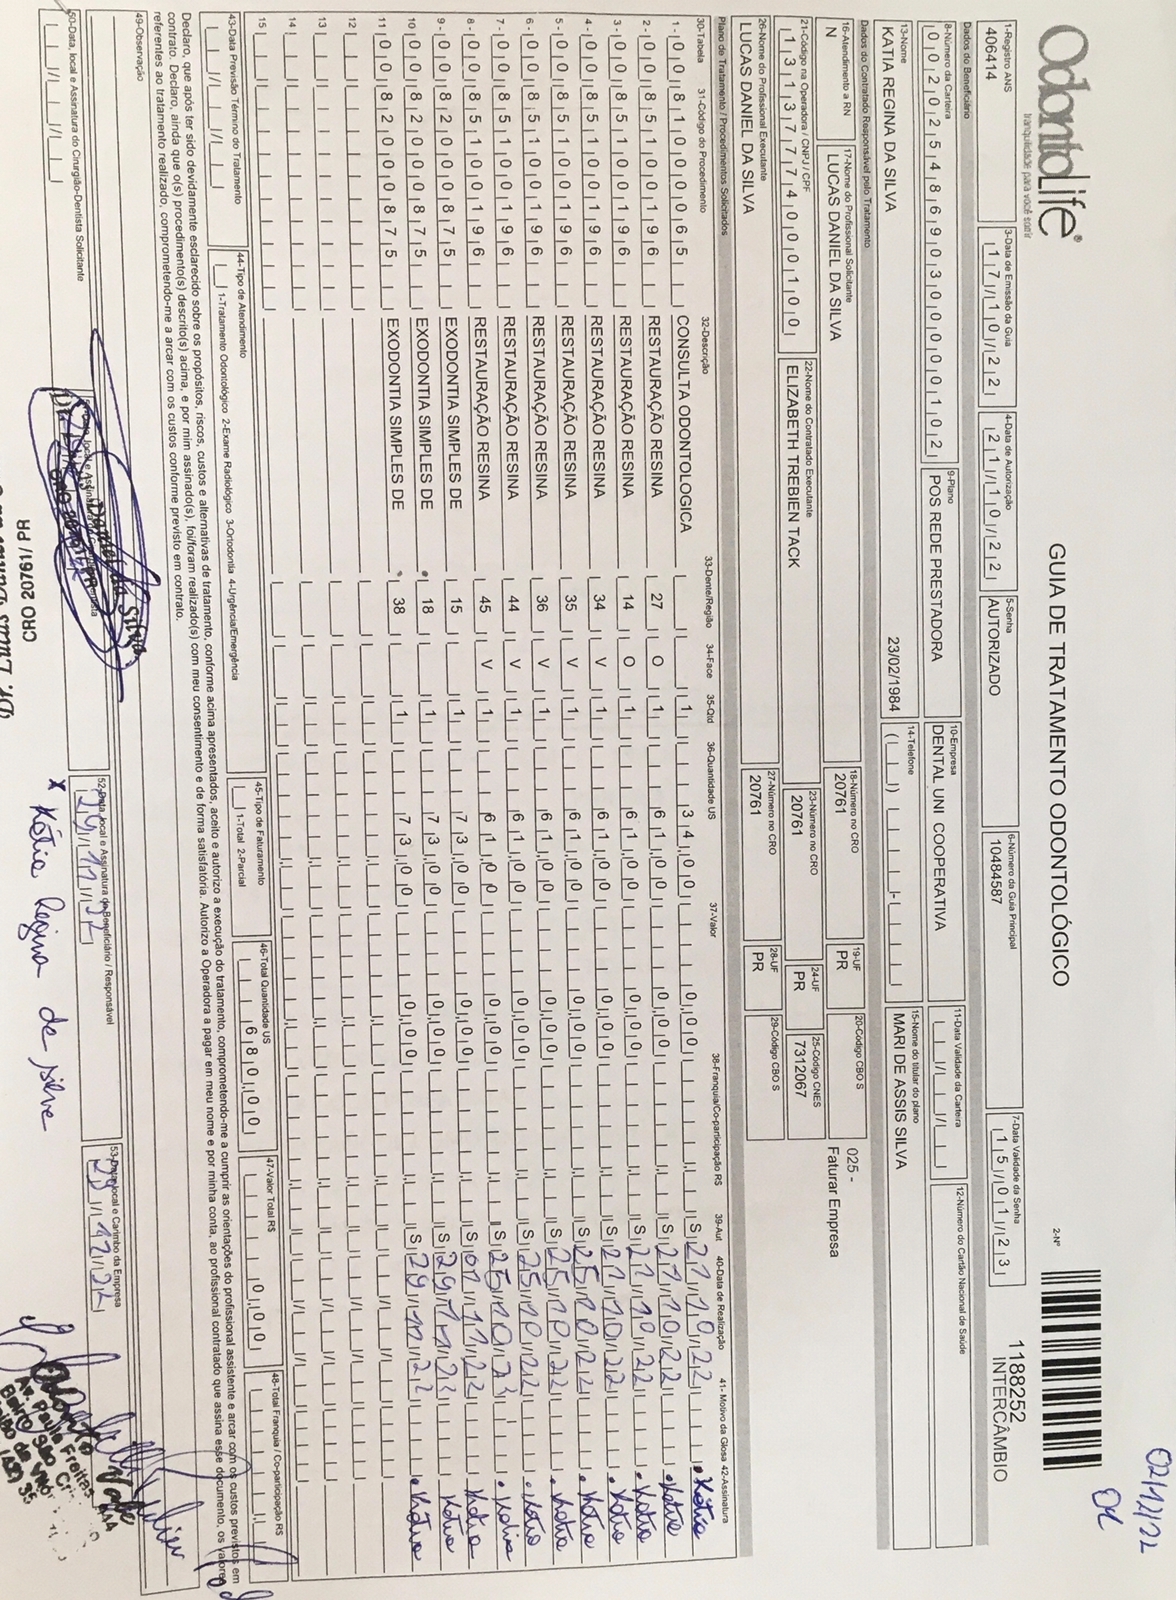 OdontoLife®
tranquilidade para você sorrir
GUIA DE TRATAMENTO ODONTOLÓGICO
2-Nº
1188252
INTERCÂMBIO
02/12/22
1-Registro ANS
406414
3-Data de Emissão da Guia
17/10/22
4-Data de Autorização
21/10/22
5-Senha
AUTORIZADO
6-Número da Guia Principal
10484587
7-Data Validade da Senha
15/01/23
Dados do Beneficiário
8-Número da Carteira
00202548690300000102
9-Plano
POS REDE PRESTADORA
10-Empresa
DENTAL UNI COOPERATIVA
11-Data Validade da Carteira
12-Número do Cartão Nacional de Saúde
13-Nome
KATIA REGINA DA SILVA 23/02/1984
14-Telefone
15-Nome do titular do plano
MARI DE ASSIS SILVA
Dados do Contratado Responsável pelo Tratamento
16-Atendimento a RN
N
17-Nome do Profissional Solicitante
LUCAS DANIEL DA SILVA
18-Número no CRO
20761
19-UF
PR
20-Código CBO S
025 -
Faturar Empresa
21-Código na Operadora / CNPJ / CPF
13137774000100
22-Nome do Contratado Executante
ELIZABETH TREBIEN TACK
23-Número no CRO
20761
24-UF
PR
25-Código CNES
7312067
26-Nome do Profissional Executante
LUCAS DANIEL DA SILVA
27-Número no CRO
20761
28-UF
PR
29-Código CBO S
Plano de Tratamento / Procedimentos Solicitados
30-Tabela 31-Código do Procedimento 32-Descrição 33-Dente/Região 34-Face 35-Qtd 36-Quantidade US 37-Valor 38-Franquia/Co-participação R$ 39-Aut 40-Data de Realização 41- Motivo da Glosa 42-Assinatura
1 - 00 81000065 CONSULTA ODONTOLOGICA 1 34,00 0,00 S 21/10/22 Kátia
2 - 00 85100196 RESTAURAÇÃO RESINA 27 O 1 61,00 0,00 S 21/10/22 Kátia
3 - 00 85100196 RESTAURAÇÃO RESINA 14 O 1 61,00 0,00 S 21/10/22 Kátia
4 - 00 85100196 RESTAURAÇÃO RESINA 34 V 1 61,00 0,00 S 21/10/22 Kátia
5 - 00 85100196 RESTAURAÇÃO RESINA 35 V 1 61,00 0,00 S 25/10/22 Kátia
6 - 00 85100196 RESTAURAÇÃO RESINA 36 V 1 61,00 0,00 S 25/10/22 Kátia
7 - 00 85100196 RESTAURAÇÃO RESINA 44 V 1 61,00 0,00 S 25/10/22 Kátia
8 - 00 85100196 RESTAURAÇÃO RESINA 45 V 1 61,00 0,00 S 25/10/23 Kátia
9 - 00 82000875 EXODONTIA SIMPLES DE 15 1 73,00 0,00 S 01/11/22 Kátia
10 00 82000875 EXODONTIA SIMPLES DE 18 1 73,00 0,00 S 29/11/22 Kátia
11 00 82000875 EXODONTIA SIMPLES DE 38 1 73,00 0,00 S 29/11/22 Kátia
12
13
14
15
43-Data Previsão Término do Tratamento
44-Tipo de Atendimento
1-Tratamento Odontológico 2-Exame Radiológico 3-Ortodontia 4-Urgência/Emergência
45-Tipo de Faturamento
1-Total 2-Parcial
46-Total Quantidade US
680,00
47-Valor Total R$
0,00
48-Total Franquia / Co-participação R$
Declaro, que após ter sido devidamente esclarecido sobre os propósitos, riscos, custos e alternativas de tratamento, conforme acima apresentados, aceito e autorizo a execução do tratamento, comprometendo-me a cumprir as orientações do profissional assistente e arcar com os custos previstos em
contrato. Declaro, ainda que o(s) procedimento(s) descrito(s) acima, e por mim assinado(s), foi/foram realizado(s) com meu consentimento e de forma satisfatória. Autorizo a Operadora a pagar em meu nome e por minha conta, ao profissional contratado que assina esse documento, os valores
referentes ao tratamento realizado, comprometendo-me a arcar com os custos conforme previsto em contrato.
49-Observação
50-Data, local e Assinatura do Cirurgião-Dentista Solicitante
52-Data, local e Assinatura do Beneficiário / Responsável
29/11/22
x Kátia Regina da Silva
53-Data, local e Carimbo da Empresa
29/12/22
Daniel da Silva
Dr. Lucas Daniel
CRO 20761/ PR
Av. Paula Freitas